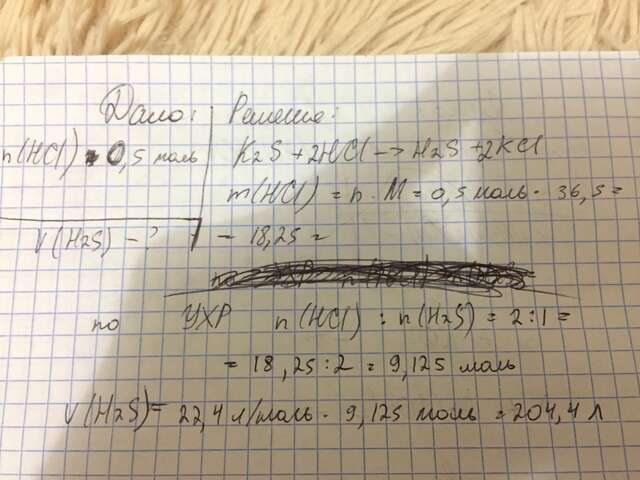 Дано: Решение:
n(HCl) = 0,5 моль K2S + 2HCl -> H2S + 2KCl
m(HCl) = n · M = 0,5 моль · 36,5 =
V(H2S) - ? = 18,25 г
по УХР n(HCl) : n(H2S) = 2:1 =
= 18,25 : 2 = 9,125 моль
V(H2S) = 22,4 л/моль · 9,125 моль = 204,4 л